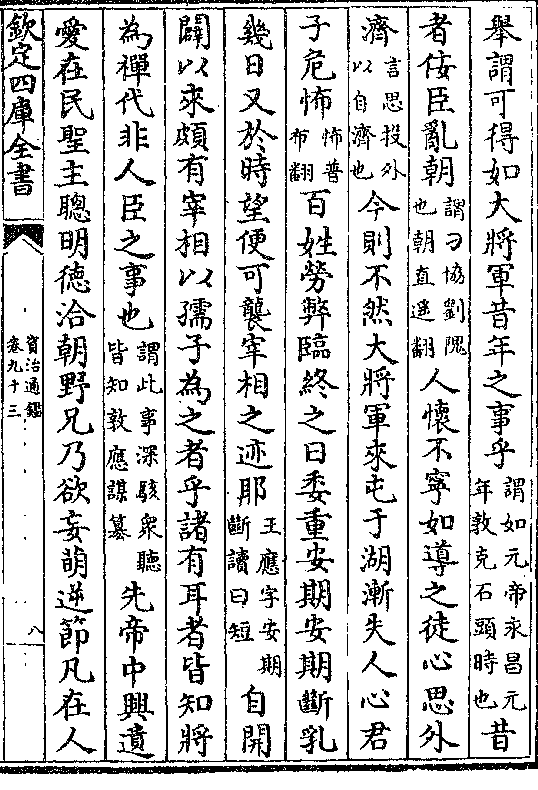 舉謂可得如大將軍昔年之事乎謂如元帝永昌元年敦克石頭時也昔
者佞臣亂朝謂刁協劉隗也朝直遥翻人懷不寧如導之徒心思外
濟言思投外以自濟也今則不然大將軍來屯于湖漸失人心君
子危怖怖普布翻百姓勞弊臨終之日委重安期安期斷乳
幾日又於時望便可襲宰相之迹耶王應字安期斷讀曰短自開
闢以來頗有宰相以孺子為之者乎諸有耳者皆知將
為禪代非人臣之事也謂此事深駭衆聽皆知敦應謀篡先帝中興遺
愛在民聖主聰明徳洽朝野兄乃欲妄萌逆節凡在人
欽定四庫全書
資治通鑑
卷九十三
八